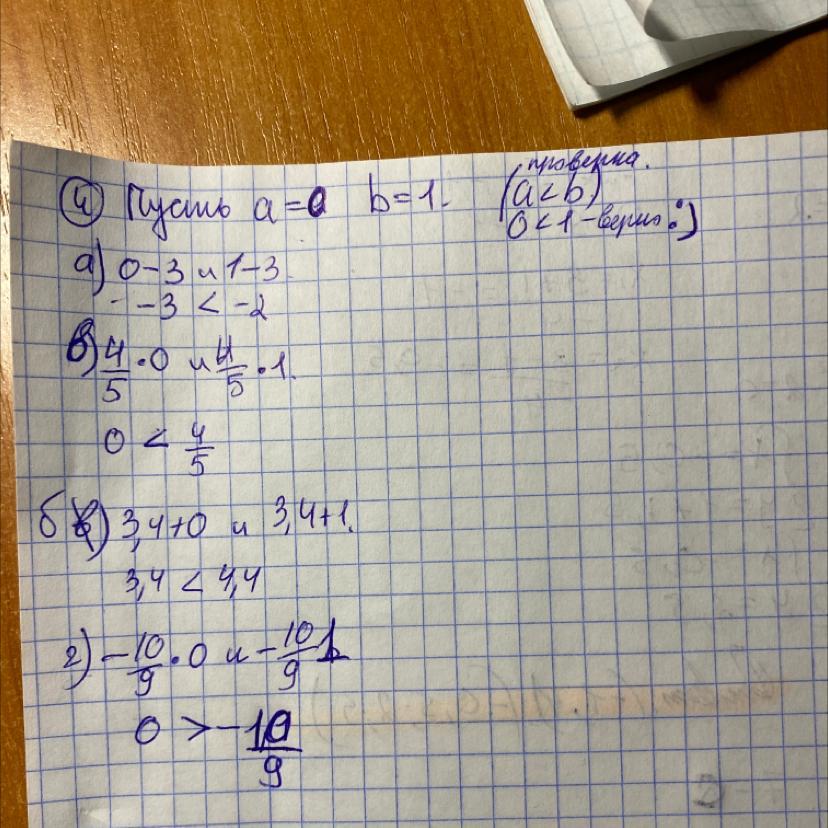 ④ Пусть a=0 b=1. (a<b) проверка.
0<1 - верно :)
а) 0-3 и 1-3
-3 < -2
в) 4/5 • 0 и 4/5 • 1.
0 < 4/5
б) 3,4+0 и 3,4+1.
3,4 < 4,4
г) -10/9 • 0 и -10/9 1
0 > -10/9